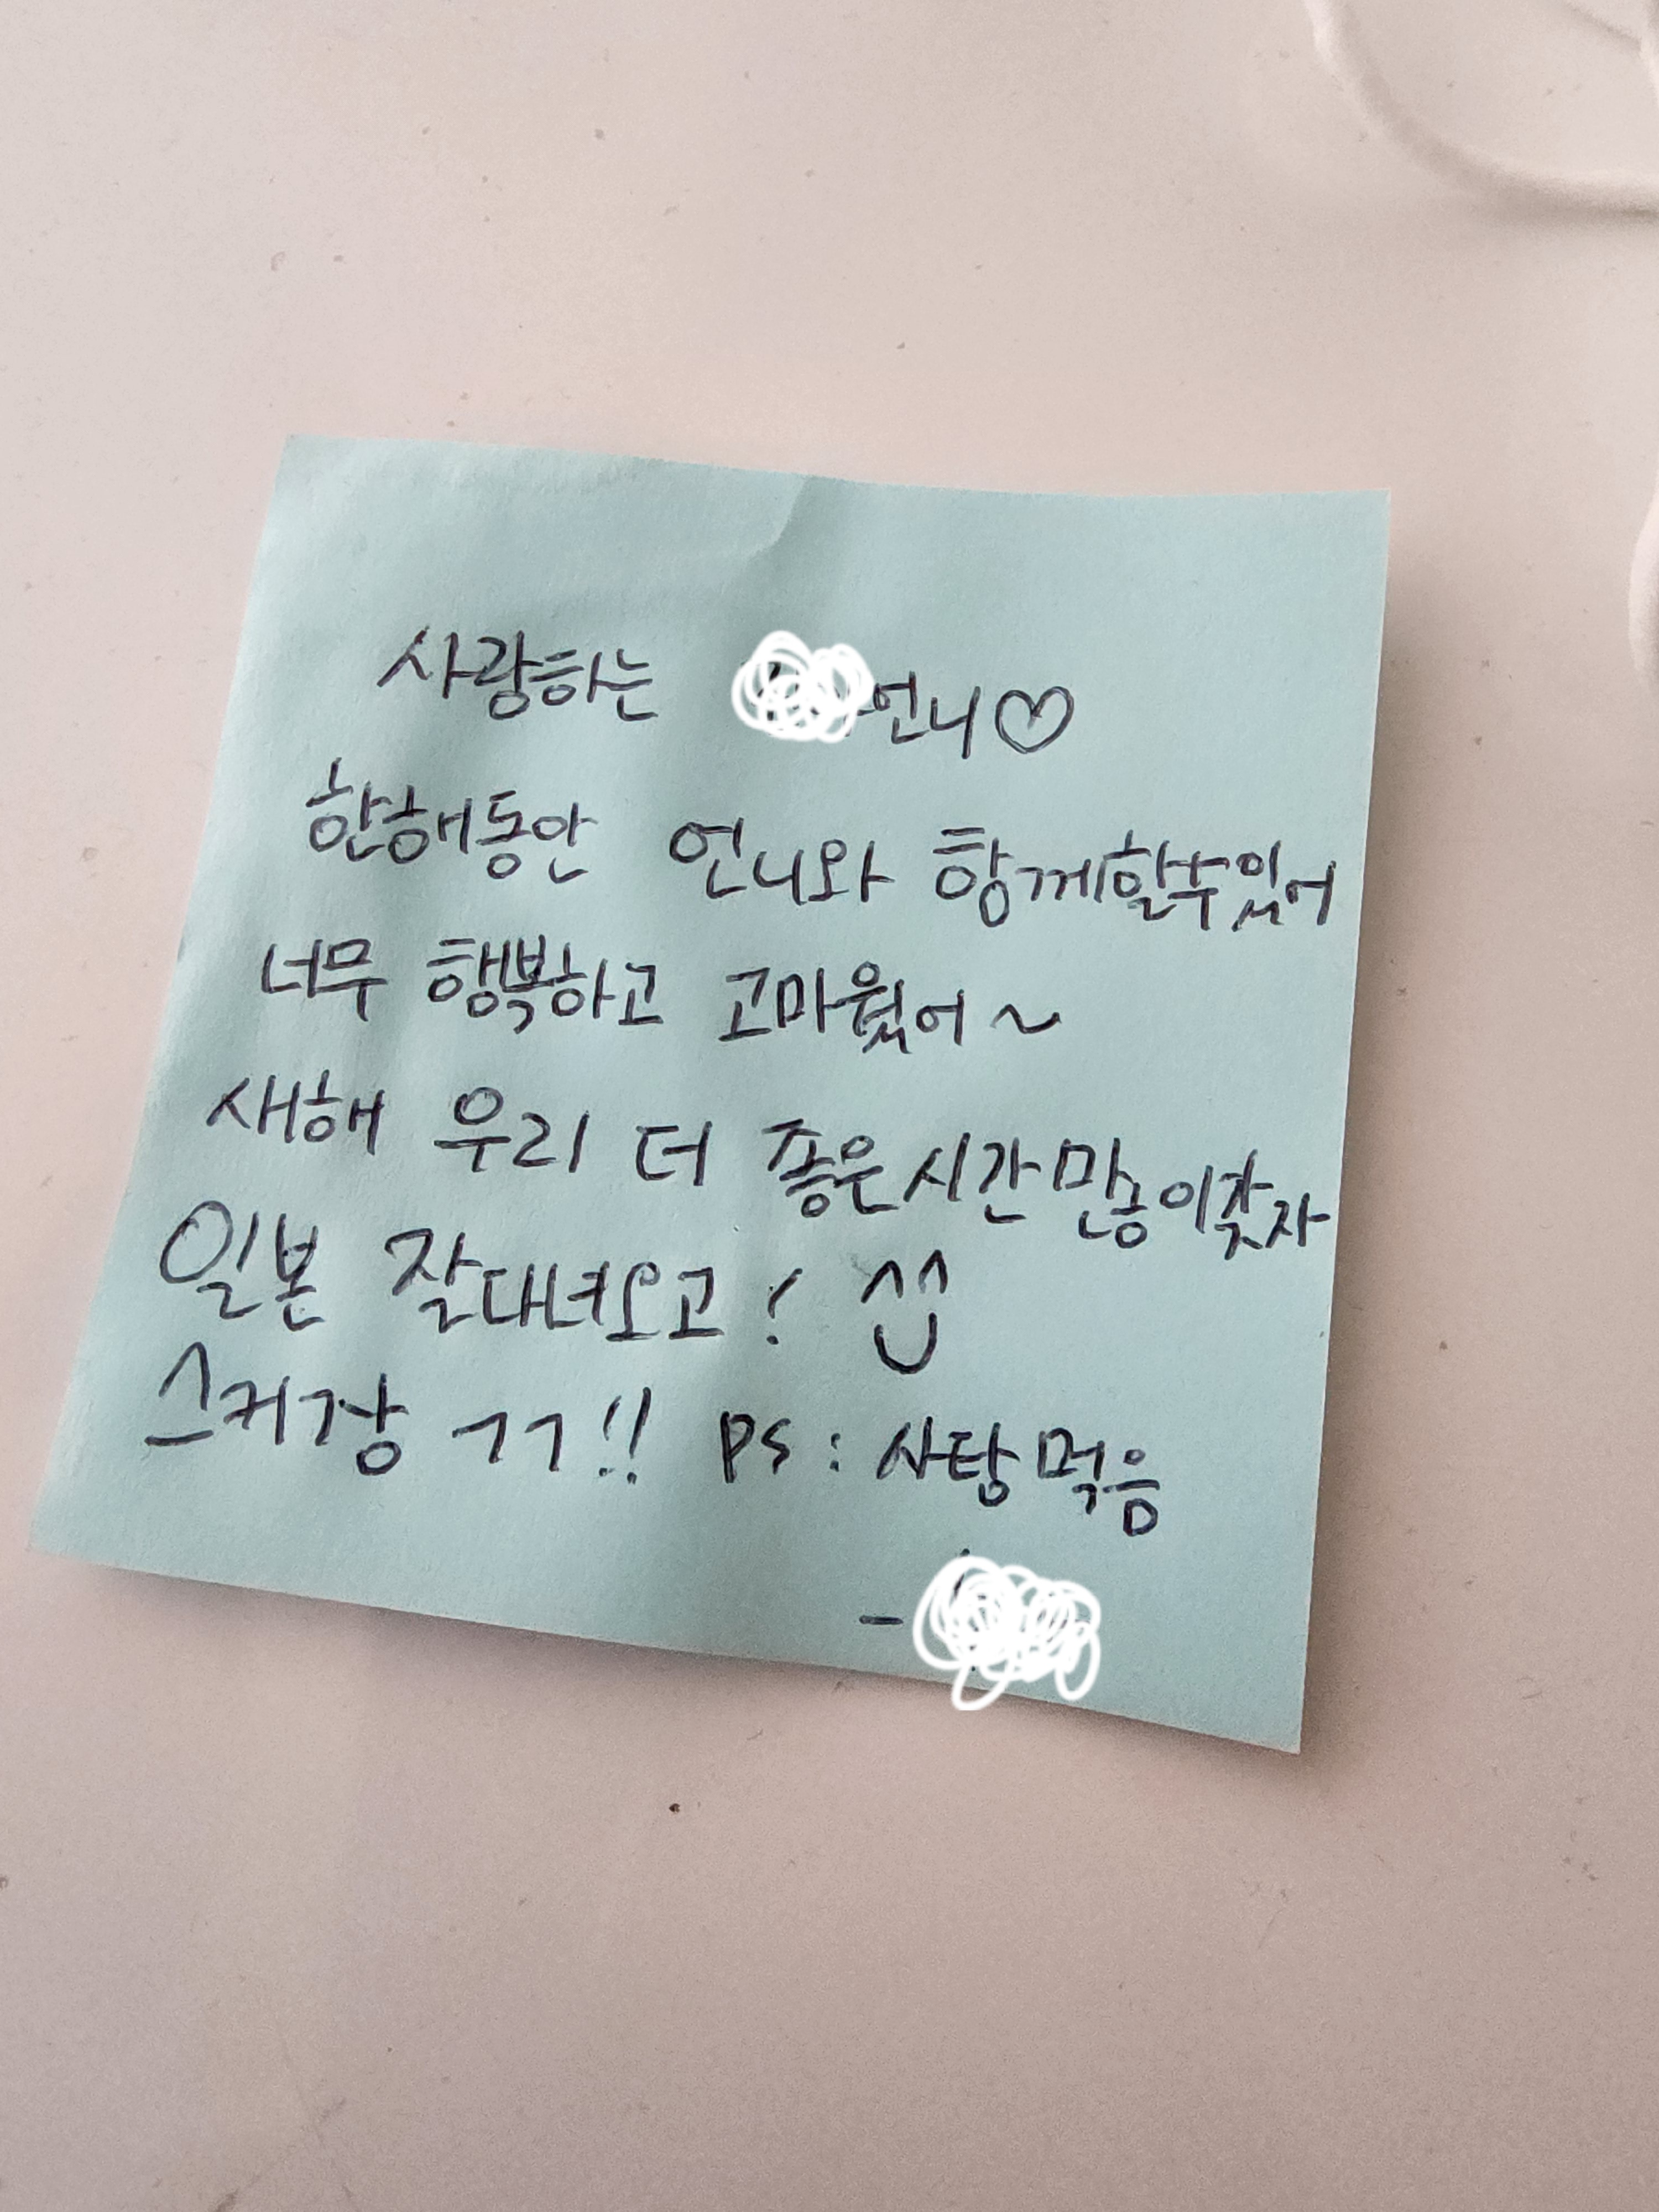 사랑하는 언니♡
한해동안 언니와 함께할수있어
너무 행복하고 고마웠어~
새해 우리 더 좋은시간많이갖자
일본 잘대녀오고! ^^
스키장 ㄱㄱ!! PS: 사탕먹음
-